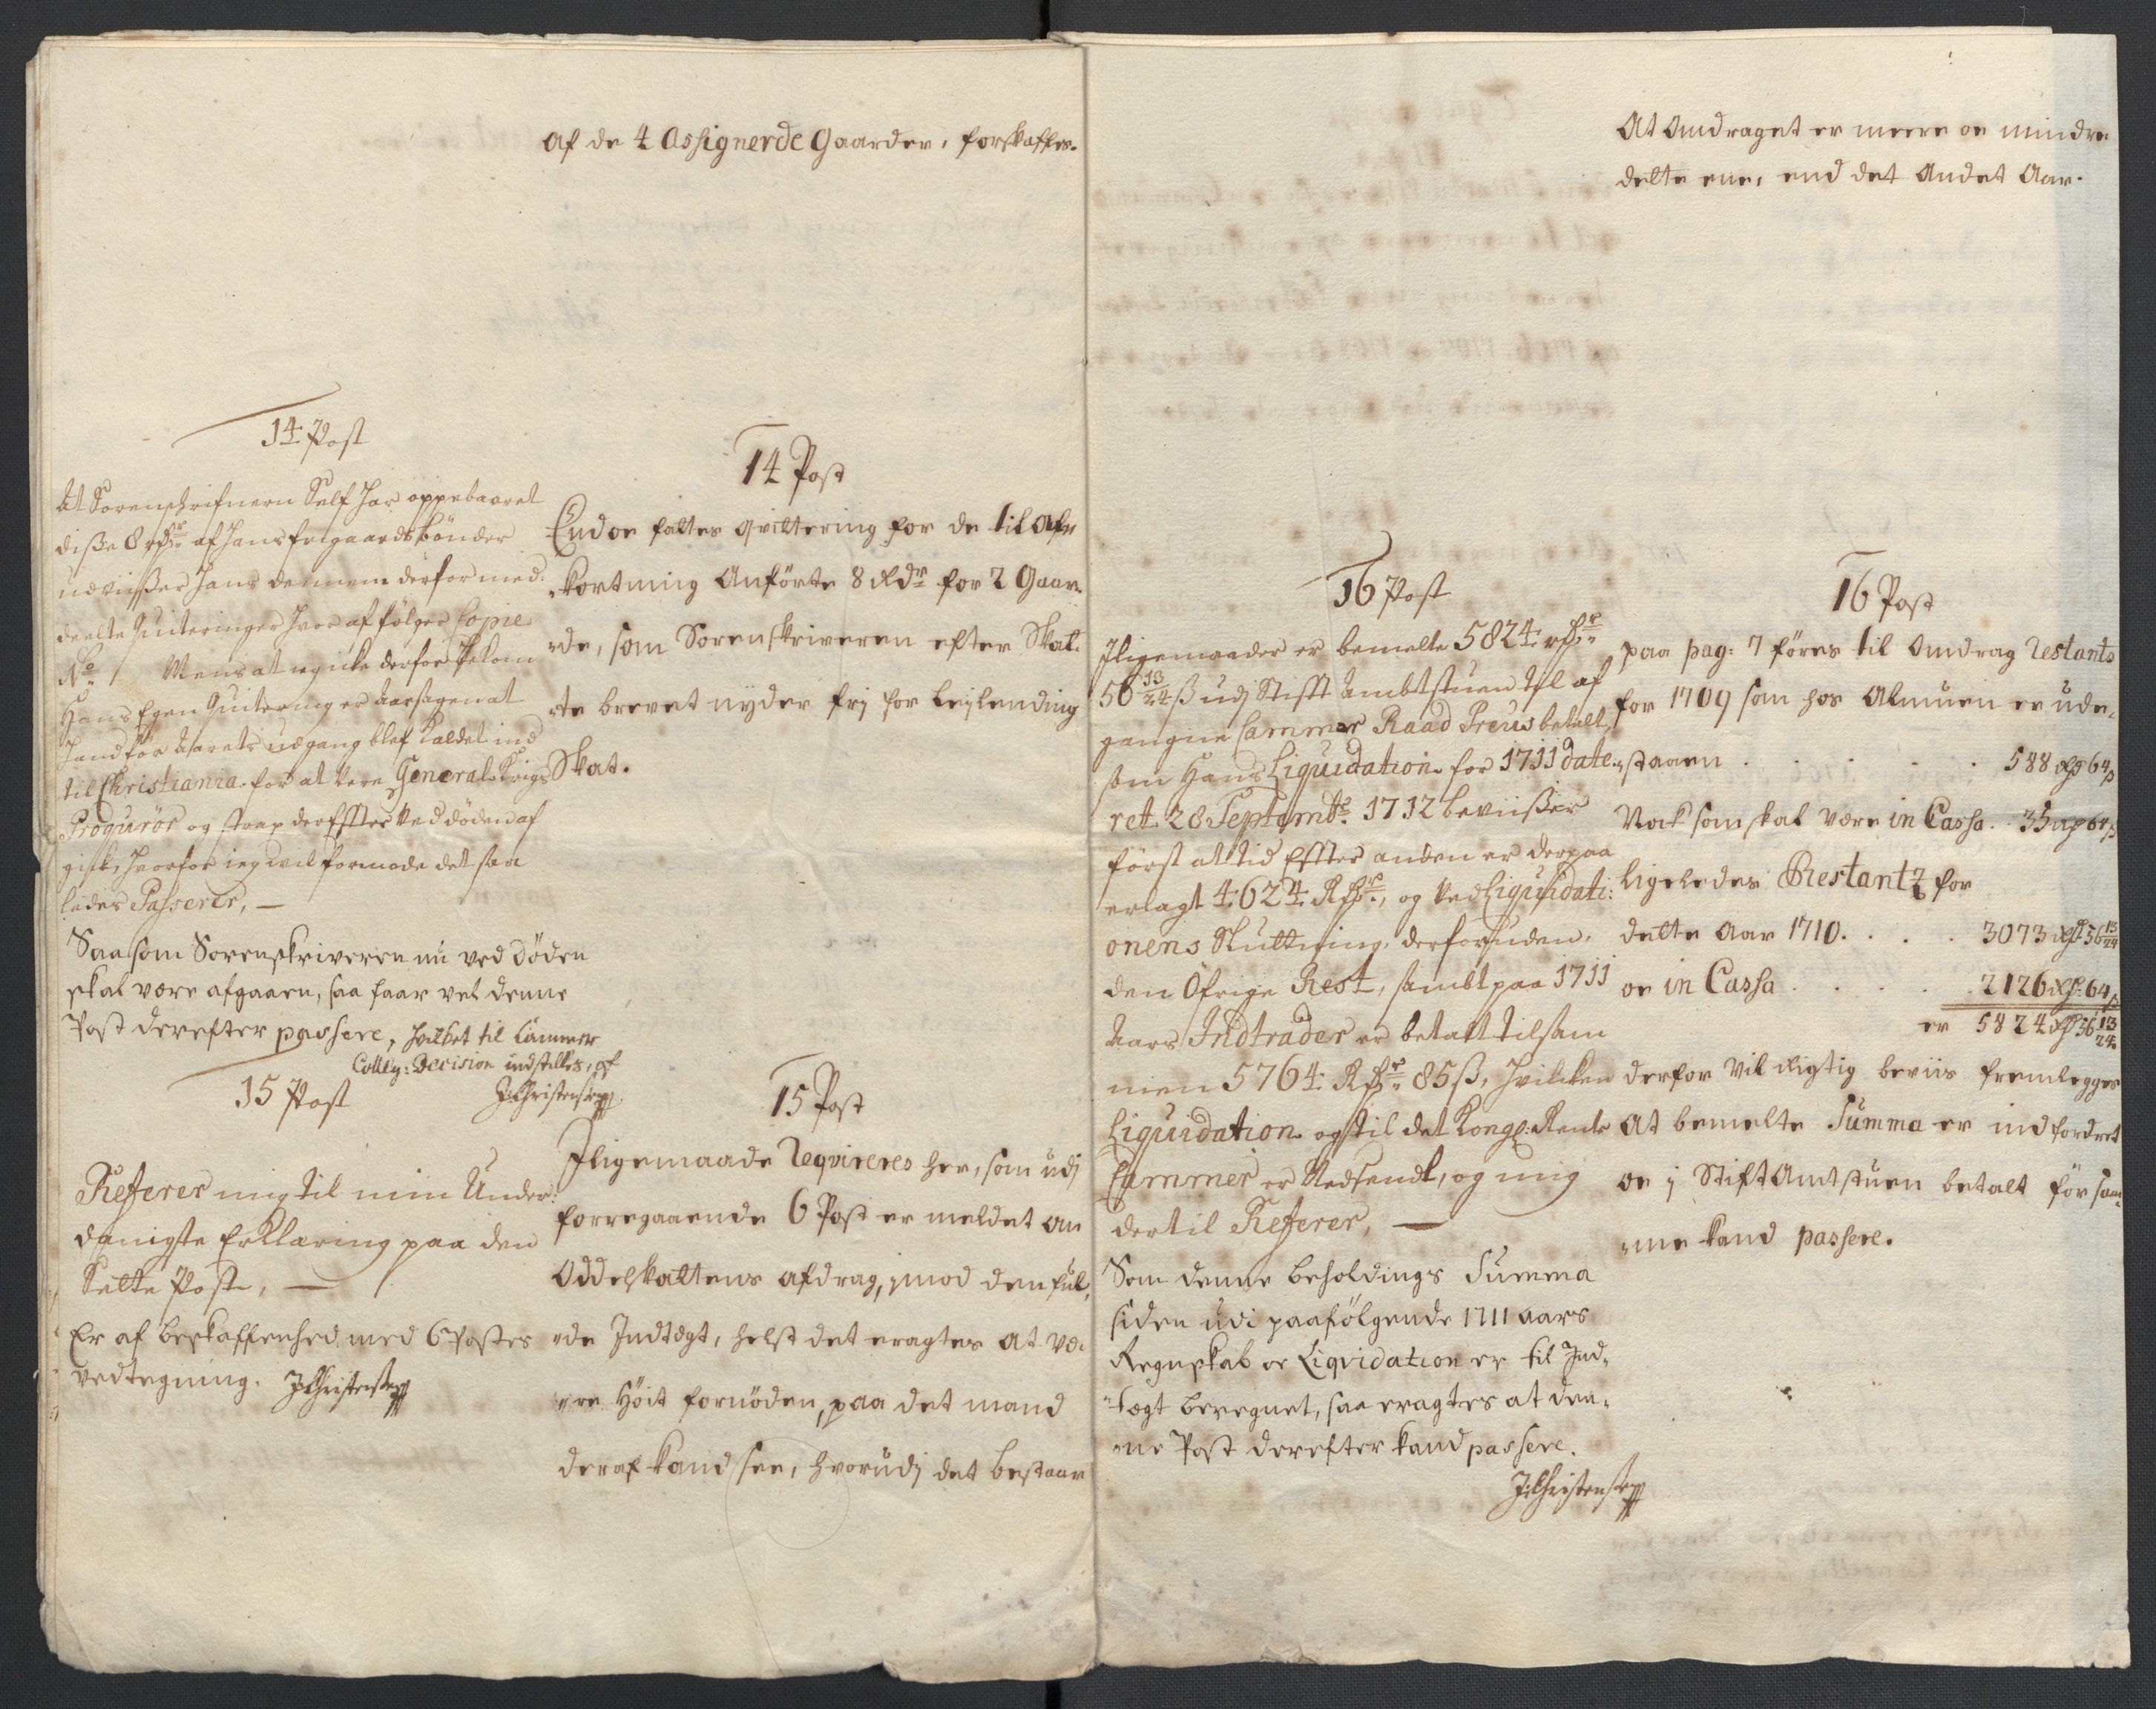 af de 4 Assignerde Gaarder, forskaffes.
14 Post
At Sorenschrifveren Self har oppebaaret
disse 8 rdr af hans frigaards bönder
udviisser hans dennem derfor med-
deelte Quiteringer hvor af fölger Copie
No Mens at ieg icke derfor bekom
Hans Egen Quitering er aarsagen at
hand för aarets udgang blef kaldet ind
til Christiania for at vere General Krigs
Proqurör og strax derEffter ved döden af
gick, hvorfor ieg vil formode det saa
ledes Passerer, —
Saasom Sorenskriveren nu ved Döden
skal være afgaaen, saa faar vel denne
Post derefter passere, hvilket til Cammer
Colleg: Decision indstilles, af
JChristensen
15 Post
Referer mig til min Under-
danigste Erklæring paa den
Sette Post, —
Er af beskaffenhed med 6 Postes
vedtegning. JChristensen
14 Post
Endoe fattes qvittering for de til Afr
kortning Anförte 8 Rdr for 2 Gaar-
de, som Sorenskriveren efter Skat-
te brevet nyder frj for Leylending
Skat.
15 Post
Jligemaade Reqvireres her, som udj
forregaaende 6 Post er meldet om
Oddelskattens afdrag, jmod den ful-
de Indtægt, helst det eragtes at væ-
re Höit fornöden, paa det mand
deraf kand see, hvorudj det bestaar
16 Post
Jligemaader er bemelte 5824 rdr
56 13/24 ß udj Stifft Ambtstuen til af
gangne Cammer Raad Preus betalt,
som Hans Liquidation for 1711 date-
ret 28 Septembr 1712 beviisser
först at tid Effter anden er derpaa
erlagt 4624 Rdr, og ved Liquidati-
onens Sluttning, derforuden,
den Öfrige Rest, sambt paa 1711
Aars Indtrader er betalt tilsam
men 5764 Rdr 85 ß, hvilcken
Liquidation og til det Kongl: Rente
Cammer er Nedsendt, og mig
dertil Referer, —
Som denne beholdings Summa
siden udi paafölgende 1711 aars
Regnskab oc Liqvidation er til Ind-
tægt beregnet, saa eragtes at den-
ne Post derefter kand passere.
JChristensen
At Omdraget er meere oc mindre
dette ene, end det Andet Aar.
16 Post
paa pag: 7 föres til Omdrag Restants
for 1709 som hos Almuen er ude-
staaen . . . . . 588 rdr 64 ß
Nock som skal være in Cassa . 35 rdr 64 ß
Ligeledes Restantz for
dette Aar 1710 . . . . 3073 rdr 56 13/24
oc in Cassa . . . . . 2126 rdr 64 ß
er 5824 rdr 56 13/24
derfor vil Rigtig beviis fremlegges
At bemelte Summa er indfordret
oc j Stift Amtstuen betalt för sam-
me kand passere.